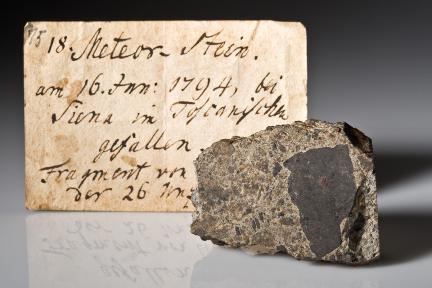 18. Meteor-Stein.
am 16. Jun: 1794, bei
Siena in Toscanischen
gefallen
Fragment von
der 26